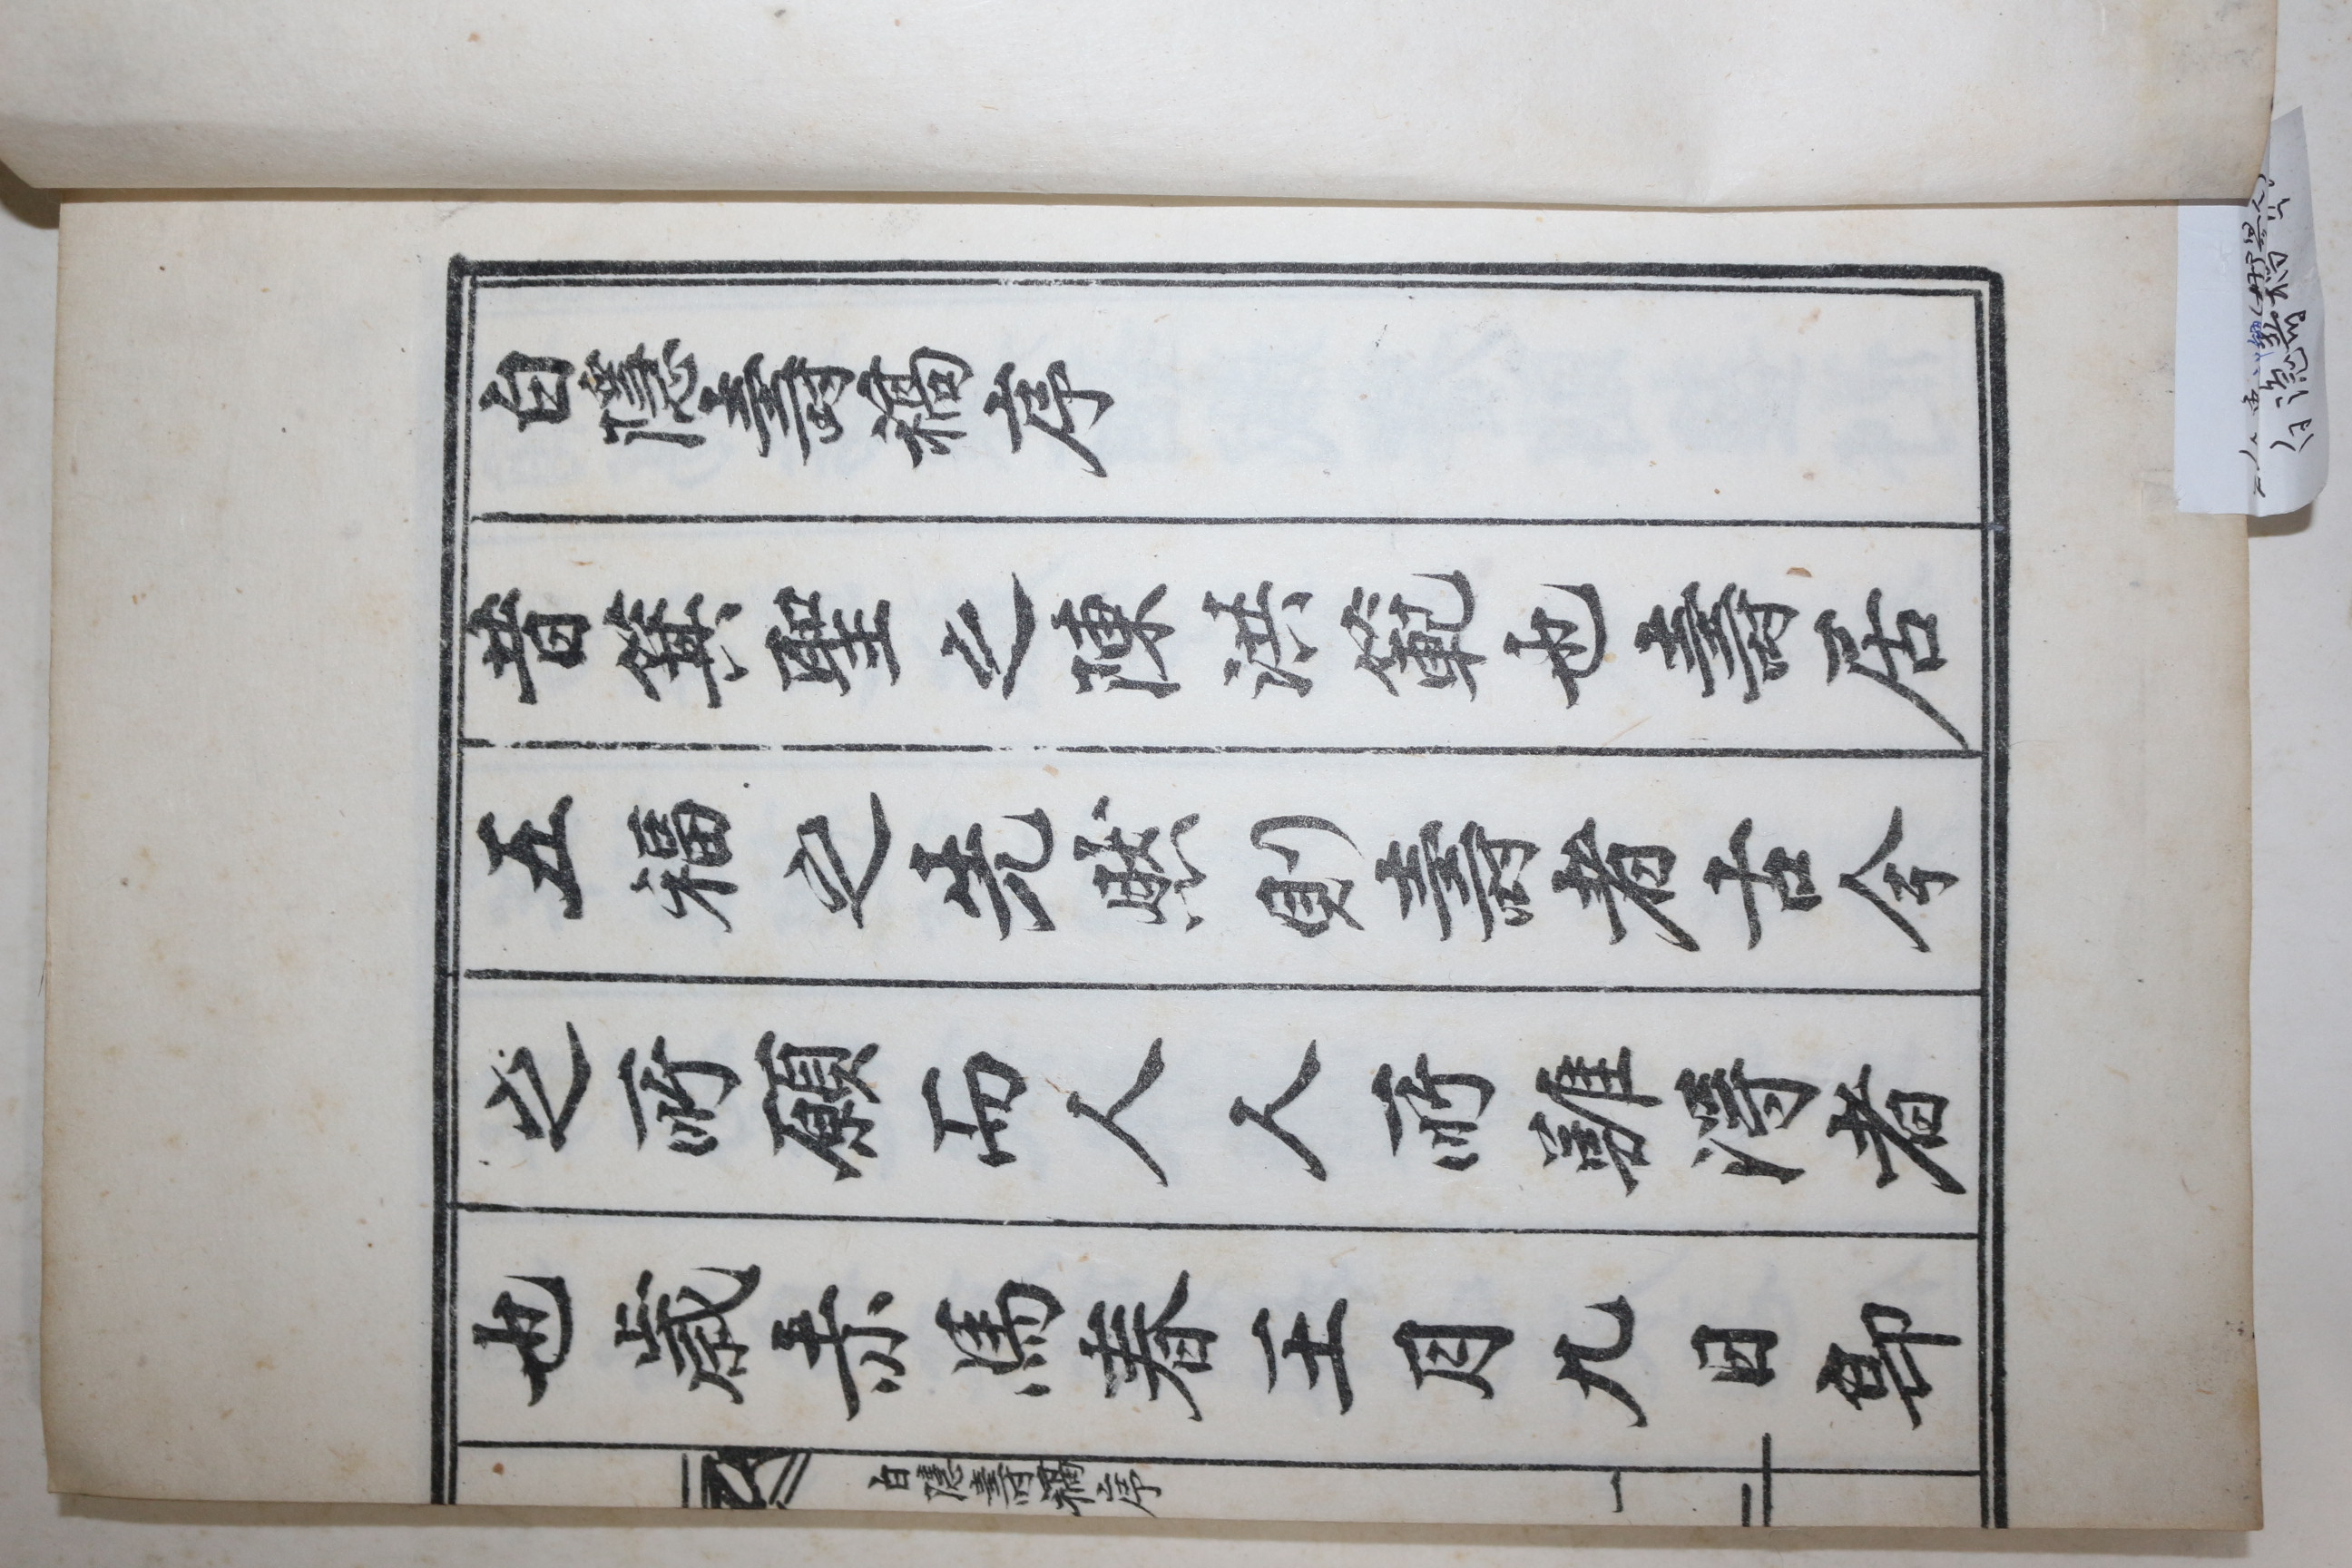 白隱壽稿序
昔箕聖之陳洪範也壽居
五福之先然則壽者古今
之所願而人人所難得者
也歲赤馬春王月九日郭
白隱壽稿序
一
白隱壽稿